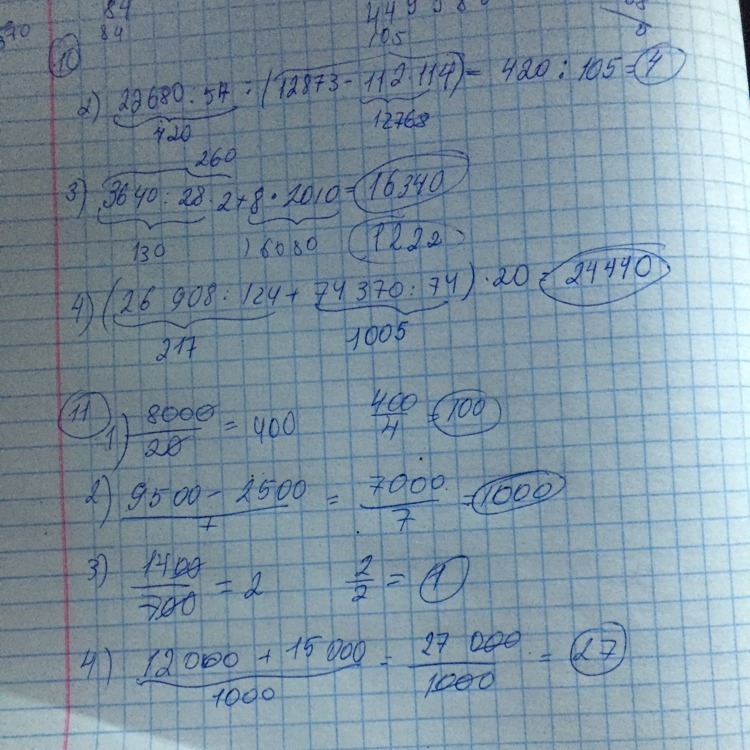 84
84
105
10
2) 22680 : 54 : (12873 - 112 · 114) = 420 : 105 = 4
420
12768
260
3) 3640 : 28 · 2 + 8 · 2010 = 16340
130
16080
1222
4) (26 908 : 124 + 74 370 : 74) · 20 = 24440
217
1005
11
1) 8000/20 = 400 400/4 = 100
2) 9500 - 2500/7 = 7000/7 = 1000
3) 1400/700 = 2 2/2 = 1
4) 12 000 + 15 000/1000 = 27 000/1000 = 27